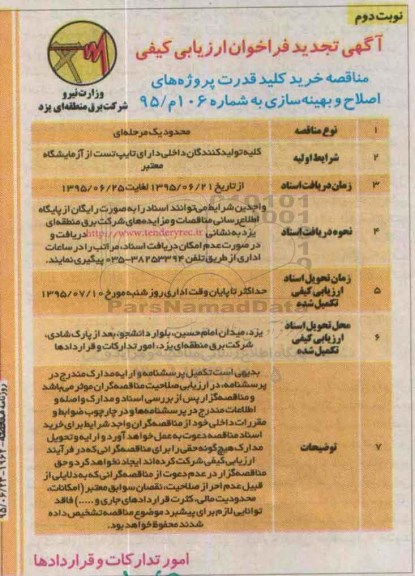 نوبت دوم
آگهی تجدید فراخوان ارزیابی کیفی
مناقصه خرید کلید قدرت پروژه‌های
اصلاح و بهینه‌سازی به شماره ۱۰۶م/۹۵
وزارت نیرو
شرکت برق منطقه‌ای یزد
۱ نوع مناقصه محدود یک مرحله‌ای
۲ شرایط اولیه کلیه تولیدکنندگان داخلی دارای تایپ تست از آزمایشگاه
معتبر
۳ زمان دریافت اسناد از تاریخ ۱۳۹۵/۰۶/۲۱ لغایت ۱۳۹۵/۰۶/۲۵
۴ نحوه دریافت اسناد
واجدین شرایط می‌توانند اسناد را به صورت رایگان از پایگاه
اطلاع‌رسانی مناقصات و مزایده‌های شرکت برق منطقه‌ای
یزد به نشانی http://www.tenderyrec.ir دریافت و
در صورت عدم امکان دریافت اسناد، مراتب را در ساعات
اداری از طریق تلفن ۳۸۲۵۳۳۹۴-۰۳۵ پیگیری نمایند.
۵ زمان تحویل اسناد
ارزیابی کیفی
تکمیل شده
حداکثر تا پایان وقت اداری روز شنبه مورخ ۱۳۹۵/۰۷/۱۰
ParsNamadData
۶ محل تحویل اسناد
ارزیابی کیفی
تکمیل شده
یزد، میدان امام حسین، بلوار دانشجو، بعد از پارک شادی،
شرکت برق منطقه‌ای یزد، امور تدارکات و قراردادها
۷ توضیحات
بدیهی است تکمیل پرسشنامه و ارایه مدارک مندرج در
پرسشنامه، در ارزیابی صلاحیت مناقصه‌گران موثر می‌باشد
و مناقصه‌گزار پس از بررسی اسناد و مدارک واصله و
اطلاعات مندرج در پرسشنامه‌ها و در چارچوب ضوابط و
مقررات داخلی خود از مناقصه‌گران واجد شرایط برای خرید
اسناد مناقصه دعوت به عمل خواهد آورد و ارایه و تحویل
مدارک هیچ‌گونه حقی را برای مناقصه‌گرانی که در فرآیند
ارزیابی کیفی شرکت کرده‌اند ایجاد نخواهد کرد و حق
مناقصه‌گزار در عدم دعوت از مناقصه‌گرانی که به دلایلی از
قبیل عدم احراز صلاحیت، نقصان سوابق معتبر (امکانات،
محدودیت مالی، کثرت قراردادهای جاری و .....) فاقد
توانایی لازم برای پیشبرد موضوع مناقصه تشخیص داده
شدند محفوظ خواهد بود.
امور تدارکات و قراردادها